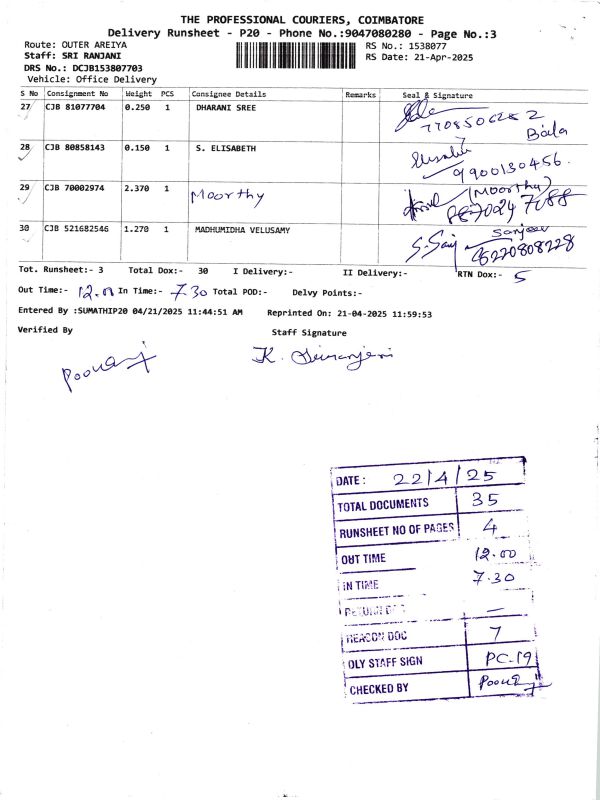 THE PROFESSIONAL COURIERS, COIMBATORE
Delivery Runsheet - P20 - Phone No.:9047080280 - Page No.:3
Route: OUTER AREIYA RS No.: 1538077
Staff: SRI RANJANI RS Date: 21-Apr-2025
DRS No.: DCJB153807703
Vehicle: Office Delivery
S No Consignment No Weight PCS Consignee Details Remarks Seal & Signature
27 CJB 81077704 0.250 1 DHARANI SREE
7708506282
Bala
28 CJB 80858143 0.150 1 S. ELISABETH
9900130456.
29 CJB 70002974 2.370 1 Moorthy (Moorthy)
30 CJB 521682546 1.270 1 MADHUMIDHA VELUSAMY Sanjeev
6220808228
Tot. Runsheet:- 3 Total Dox:- 30 I Delivery:- II Delivery:- RTN Dox:- 5
Out Time:- 12.00 In Time:- 7.30 Total POD:- Delvy Points:-
Entered By :SUMATHIP20 04/21/2025 11:44:51 AM Reprinted On: 21-04-2025 11:59:53
Verified By Staff Signature
DATE : 22/4/25
TOTAL DOCUMENTS 35
RUNSHEET NO OF PAGES 4
OUT TIME 12.00
IN TIME 7.30
RETURN DOC —
REACON DOC 7
OLY STAFF SIGN PC-19
CHECKED BY